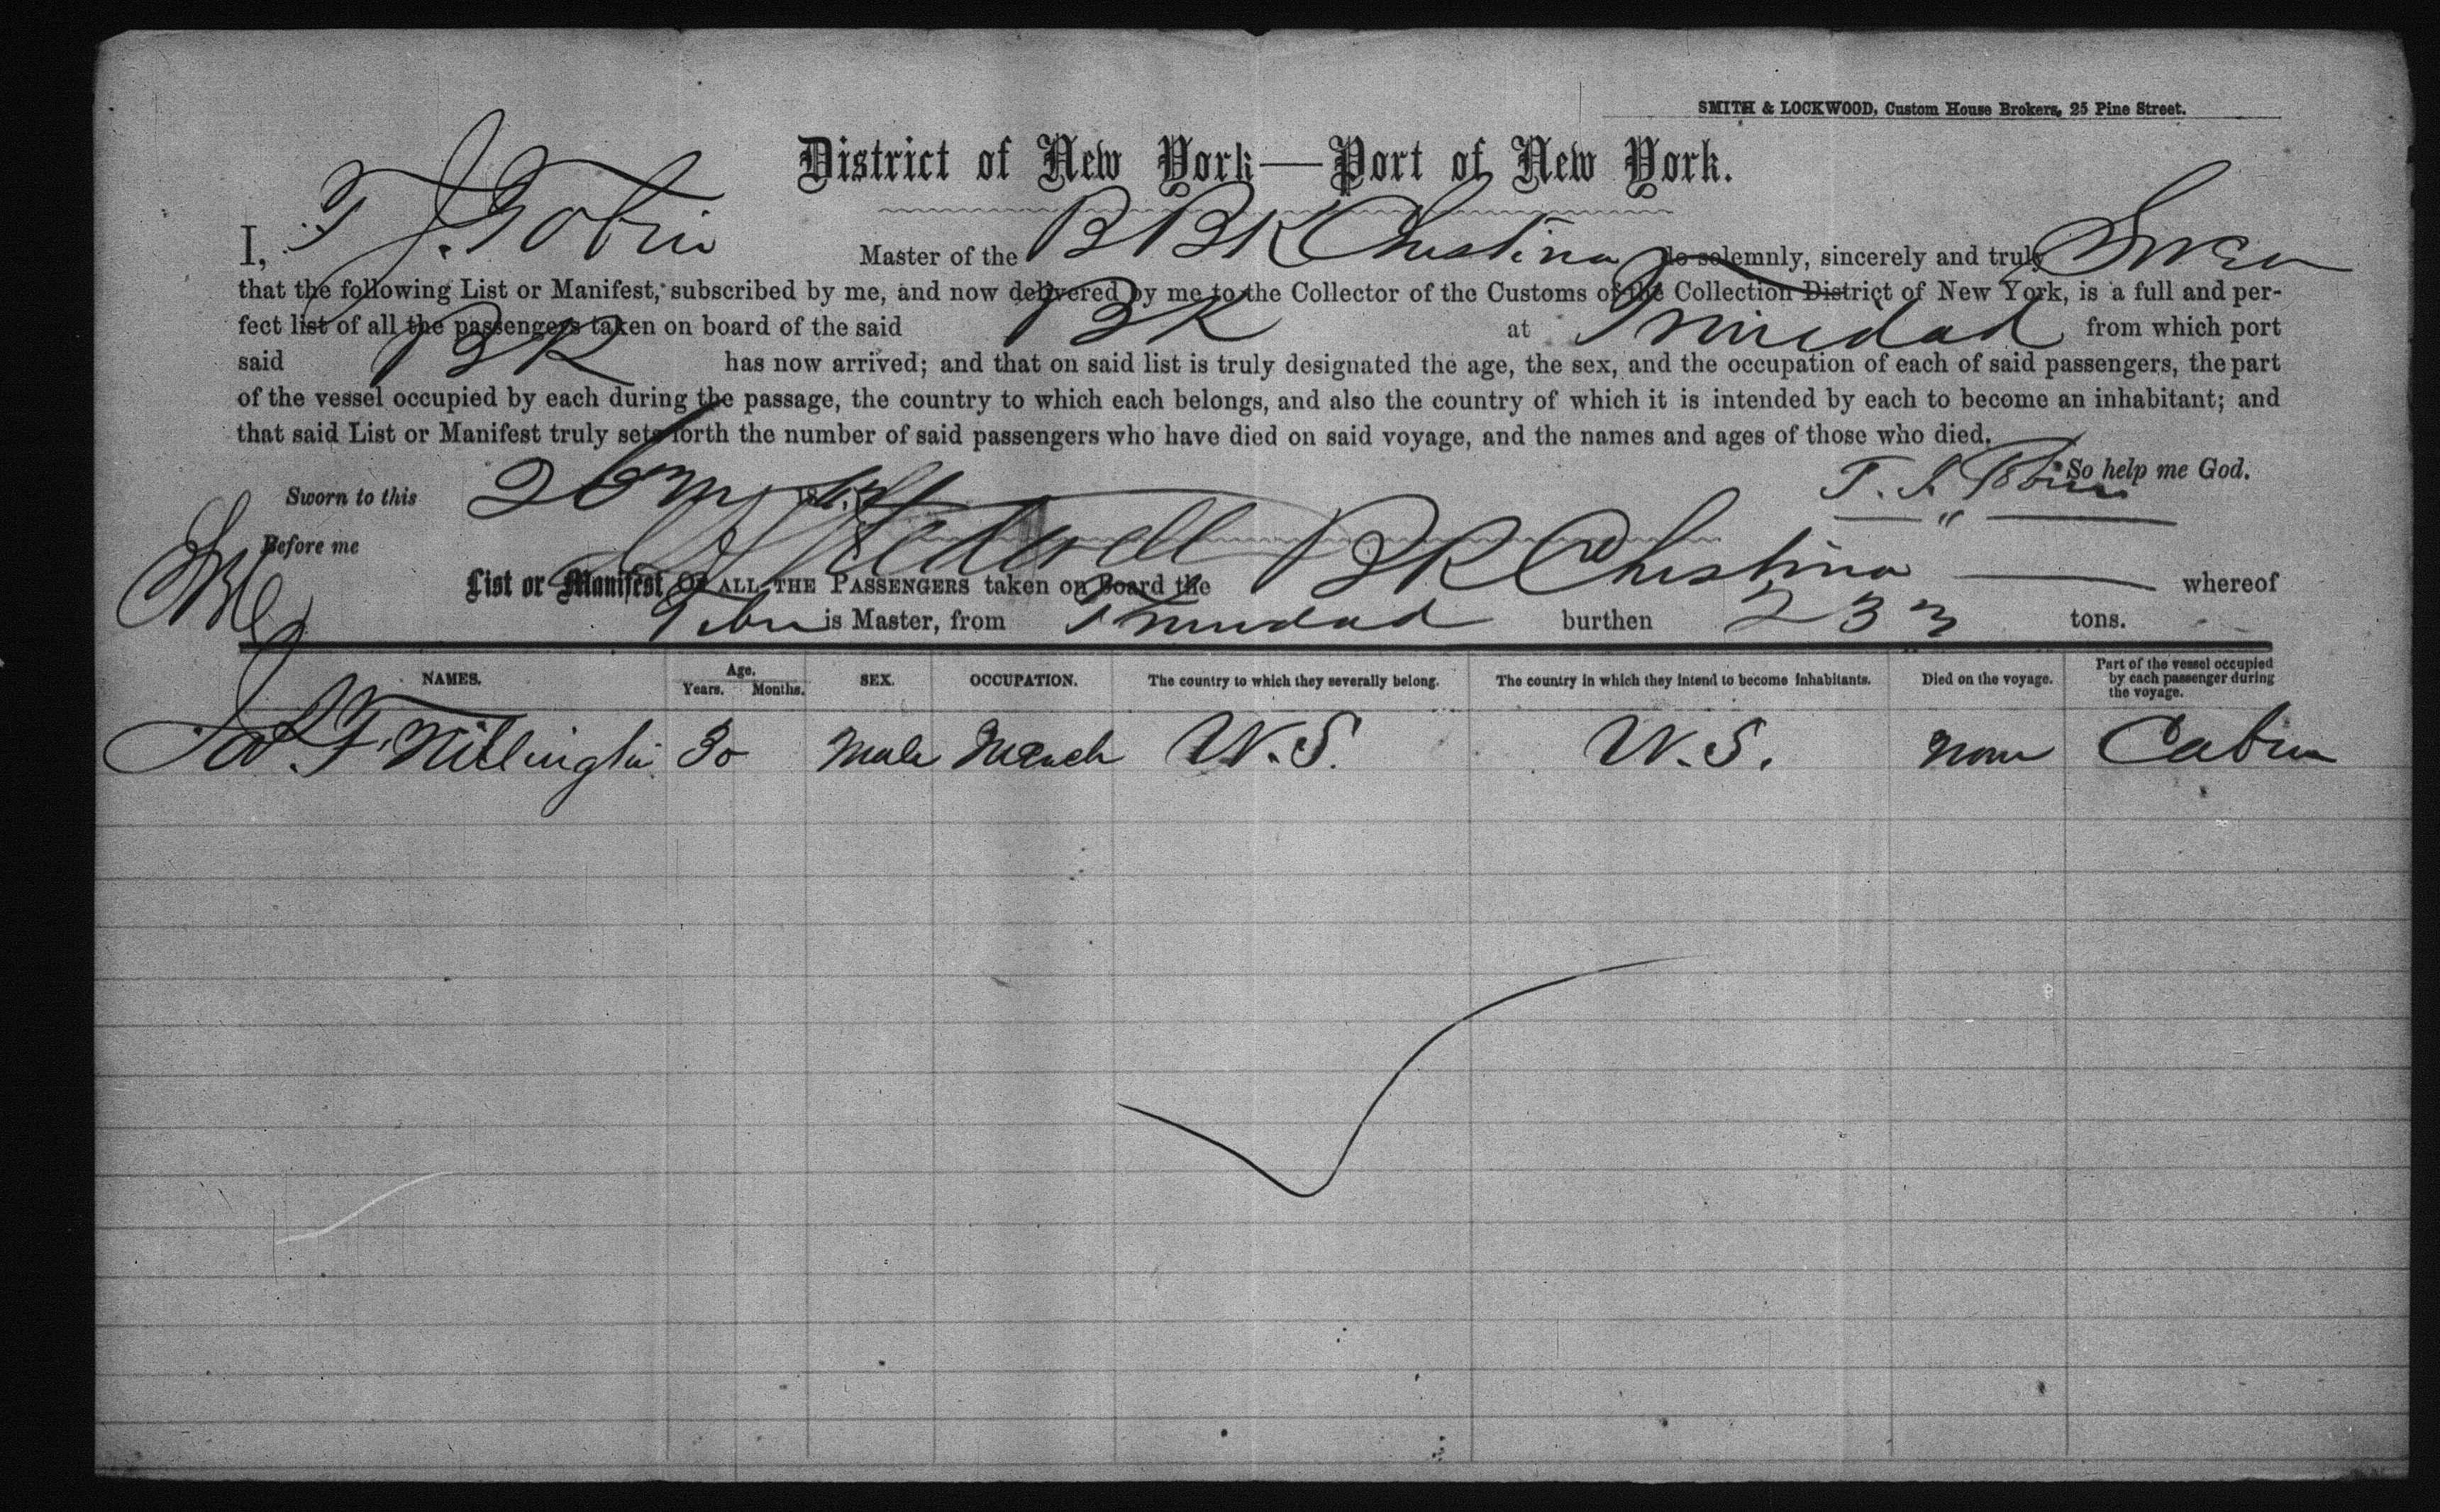 SMITH & LOCKWOOD, Custom House Brokers, 25 Pine Street.
District of New York—Port of New York.
I, T. J. Tobin Master of the B BK Christina do solemnly, sincerely and truly Swear
that the following List or Manifest, subscribed by me, and now delivered by me to the Collector of the Customs of the Collection District of New York, is a full and per-
fect list of all the passengers taken on board of the said BK at Trinidad from which port
said BK has now arrived; and that on said list is truly designated the age, the sex, and the occupation of each of said passengers, the part
of the vessel occupied by each during the passage, the country to which each belongs, and also the country of which it is intended by each to become an inhabitant; and
that said List or Manifest truly sets forth the number of said passengers who have died on said voyage, and the names and ages of those who died.
So help me God.
Sworn to this 26 T. J. Tobin
Before me
List or Manifest OF ALL THE PASSENGERS taken on Board the BK Christina whereof
Tobin is Master, from Trinidad burthen 233 tons.
NAMES. Age. Years. Months. SEX. OCCUPATION. The country to which they severally belong. The country in which they intend to become inhabitants. Died on the voyage. Part of the vessel occupied by each passenger during the voyage.
F. 30 Male Merch U.S. U.S. None Cabin